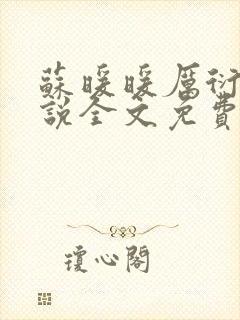 蘇暖暖厲衍
說全文免費
瓊心閣